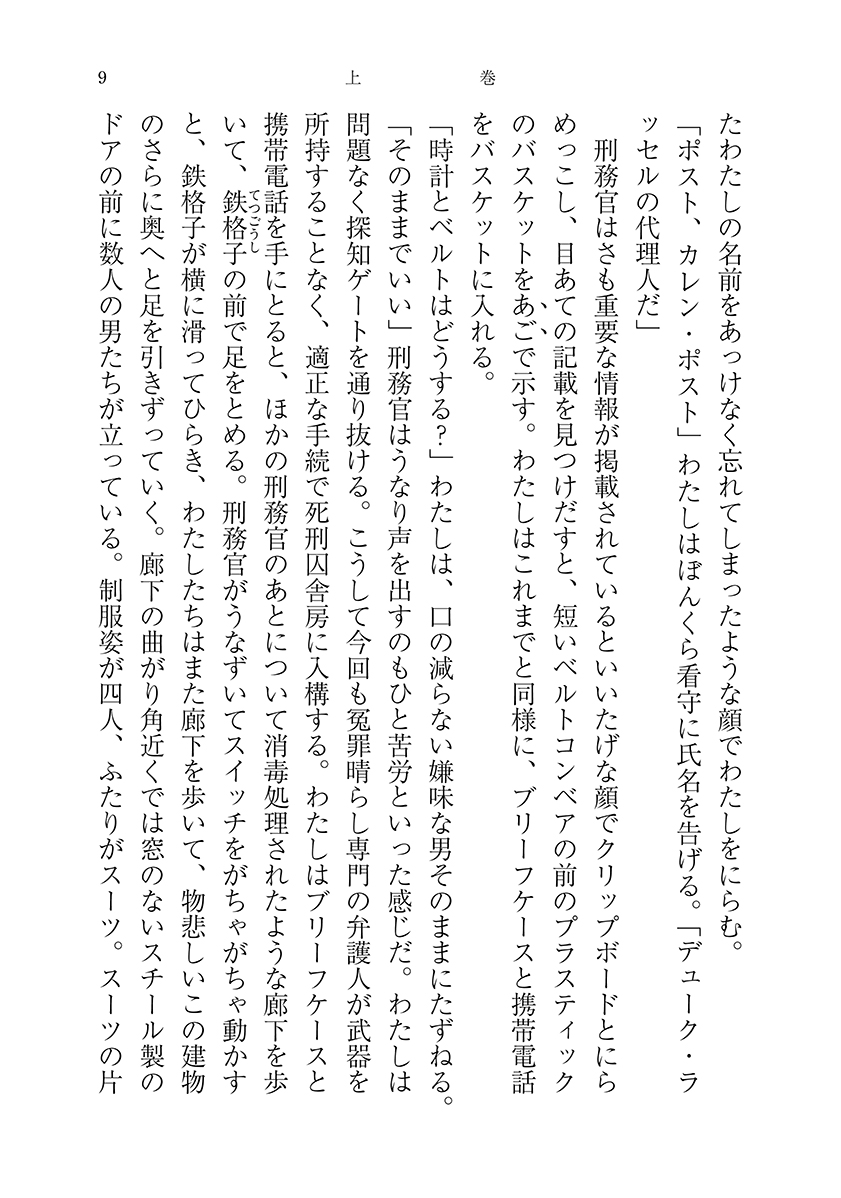 9
上巻
たわたしの名前をあっけなく忘れてしまったような顔でわたしをにらむ。
「ポスト、カレン・ポスト」わたしはぼんくら看守に氏名を告げる。「デューク・ラ
ッセルの代理人だ」
刑務官はさも重要な情報が掲載されているといいたげな顔でクリップボードとにら
めっこし、目あての記載を見つけだすと、短いベルトコンベアの前のプラスティック
のバスケットをあごで示す。わたしはこれまでと同様に、ブリーフケースと携帯電話
をバスケットに入れる。
「時計とベルトはどうする？」わたしは、口の減らない嫌味な男そのままにたずねる。
「そのままでいい」刑務官はうなり声を出すのもひと苦労といった感じだ。わたしは
問題なく探知ゲートを通り抜ける。こうして今回も冤罪晴らし専門の弁護人が武器を
所持することなく、適正な手続で死刑囚舎房に入構する。わたしはブリーフケースと
携帯電話を手にとると、ほかの刑務官のあとについて消毒処理されたような廊下を歩
いて、鉄格子の前で足をとめる。刑務官がうなずいてスイッチをがちゃがちゃ動かす
てつごうし
と、鉄格子が横に滑ってひらき、わたしたちはまた廊下を歩いて、物悲しいこの建物
のさらに奥へと足を引きずっていく。廊下の曲がり角近くでは窓のないスチール製の
ドアの前に数人の男たちが立っている。制服姿が四人、ふたりがスーツ。スーツの片